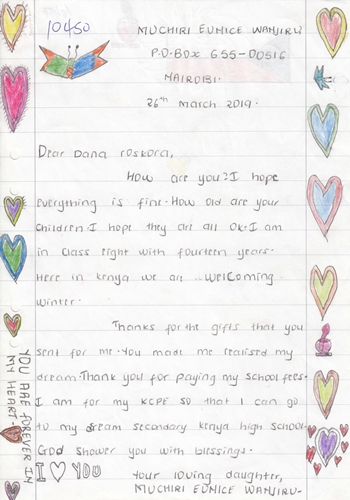 10450
MUCHIRI EUNICE WANJIRU
P.O.BOX 655-00516
NAIROBI.
26th March 2019.
Dear Dana roskora,
How are you? I hope
everything is fine. How old are your
Children. I hope they are all ok. I am
in Class eight with fourteen years.
Here in kenya we are welcoming
winter.
Thanks for the gifts that you
sent for me. You made me realised my
dream. Thank you for paying my school fees.
I am for my KCPE so that I can go
to my dream secondary kenya high school.
God shower you with blessings.
I YOU
Your loving daughter,
MUCHIRI EUNICE WANJIRU.
YOU ARE FOREVER IN
MY HEART.